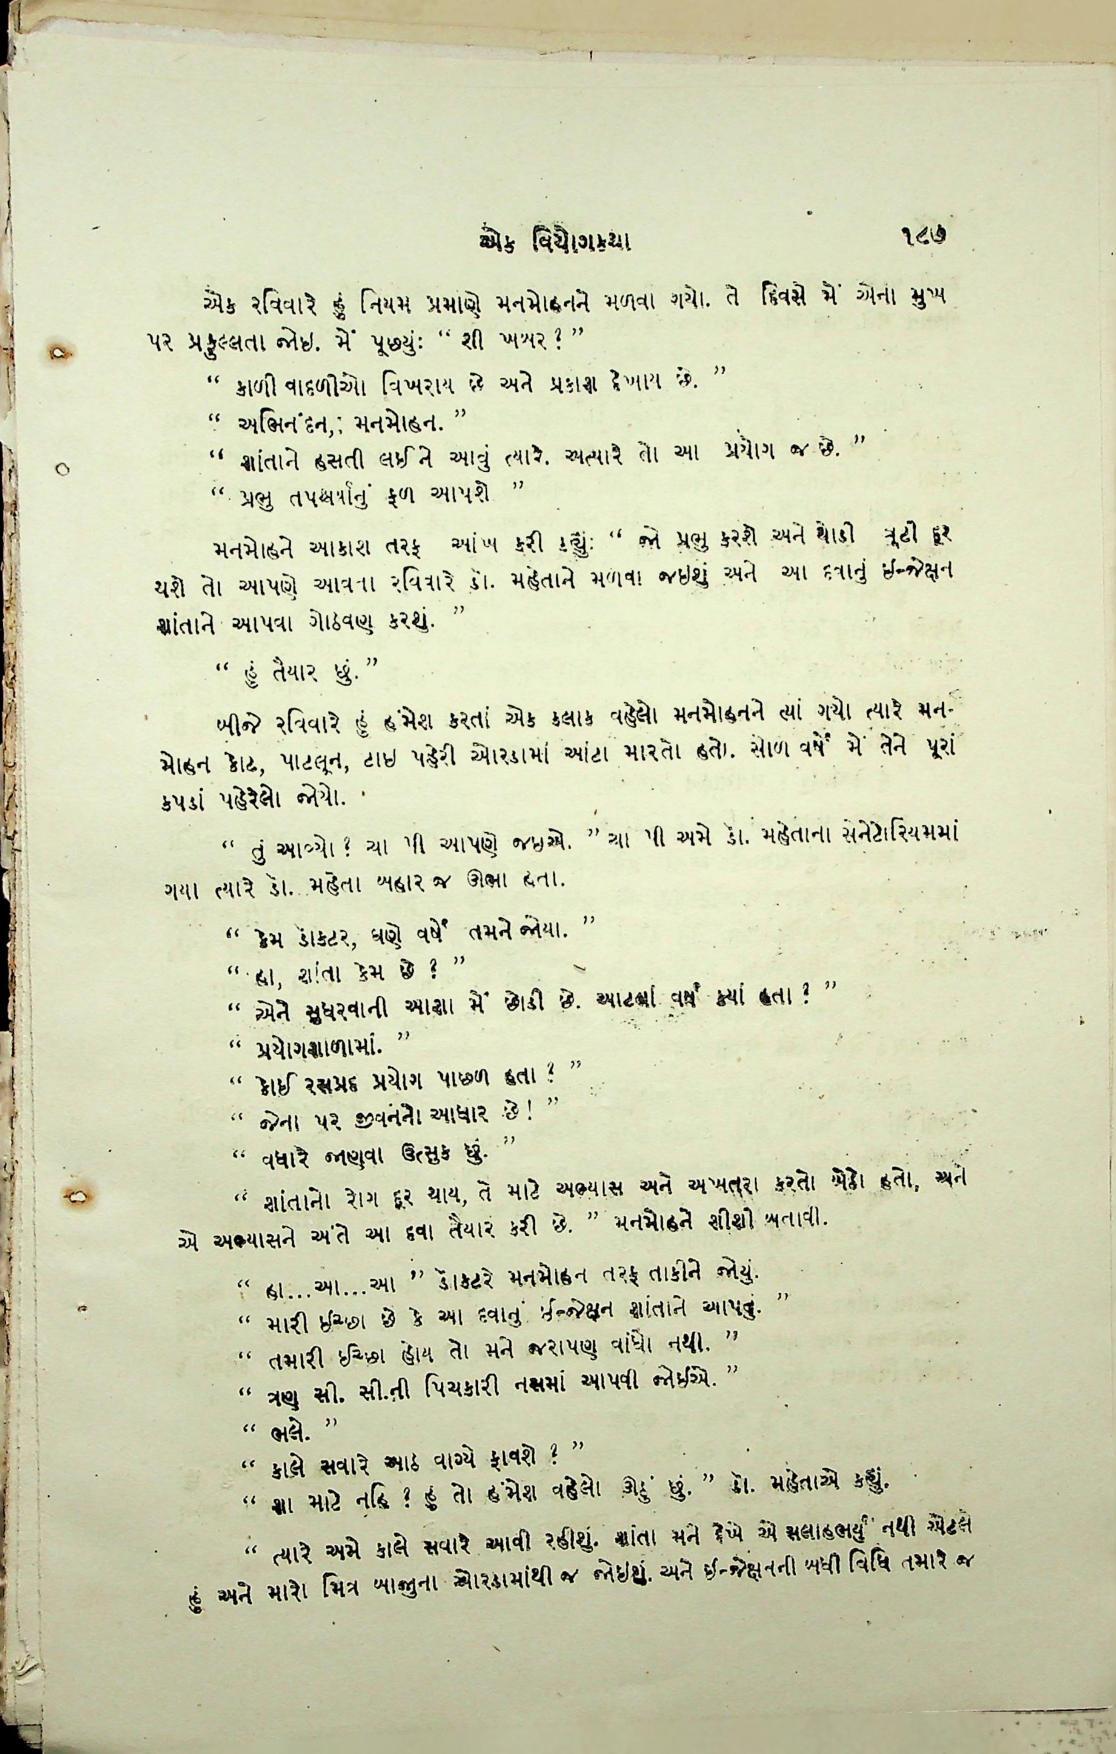 એક વિયોગકથા ૧૮૭
એક રવિવારે હું નિયમ પ્રમાણે મનમોહનને મળવા ગયો. તે દિવસે મેં એના મુખ
પર પ્રફુલ્લતા જોઇ. મેં પૂછ્યુંઃ “ શી ખબર ? ”
“ કાળી વાદળીઓ વિખરાય છે અને પ્રકાશ દેખાય છે. ”
“ અભિનંદન,; મનમોહન. ”
“ શાંતાને હસતી લઈને આવું ત્યારે. અત્યારે તો આ પ્રયોગ જ છે. ”
“ પ્રભુ તપશ્ચર્યાનું ફળ આપશે ”
મનમોહને આકાશ તરફ આંખ કરી કહ્યુંઃ “ જો પ્રભુ કરશે અને થોડી ત્રૂટી દૂર
થશે તો આપણે આવતા રવિવારે ડૉ. મહેતાને મળવા જઇશું અને આ દવાનું ઈન્જેક્ષન
શાંતાને આપવા ગોઠવણ કરશું. ”
“ હું તૈયાર છું. ”
બીજે રવિવારે હું હંમેશ કરતાં એક કલાક વહેલો મનમોહનને ત્યાં ગયો ત્યારે મન-
મોહન કોટ, પાટલૂન, ટાઇ પહેરી ઓરડામાં આંટા મારતો હતો. સોળ વર્ષે મેં તેને પૂરાં
કપડાં પહેરેલો જોયો.
“ તું આવ્યો ? ચા પી આપણે જઇએ. ” ચા પી અમે ડૉ. મહેતાના સેનેટોરિયમમાં
ગયા ત્યારે ડૉ. મહેતા બહાર જ ઊભા હતા.
“ કેમ ડૉકટર, ઘણે વર્ષે તમને જોયા. ”
“ હા, શાંતા કેમ છે ? ”
“ એને સુધરવાની આશા મેં છોડી છે. આટલાં વર્ષ ક્યાં હતા ? ”
“ પ્રયોગશાળામાં. ”
“ કોઈ રસપ્રદ પ્રયોગ પાછળ હતા ? ”
“ જેના પર જીવનનો આધાર છે ! ”
“ વધારે જાણવા ઉત્સુક છું. ”
“ શાંતાનો રોગ દૂર થાય, તે માટે અભ્યાસ અને અખતરા કરતો બેઠો હતો, અને
એ અભ્યાસને અંતે આ દવા તૈયાર કરી છે. ” મનમોહને શીશી બતાવી.
“ હા...આ...આ ” ડૉકટરે મનમોહન તરફ તાકીને જોયું.
“ મારી ઈચ્છા છે કે આ દવાનું ઈન્જેક્ષન શાંતાને આપવું. ”
“ તમારી ઈચ્છા હોય તો મને જરાપણ વાંધો નથી. ”
“ ત્રણ સી. સી.ની પિચકારી નસમાં આપવી જોઈએ. ”
“ ભલે. ”
“ કાલે સવારે આઠ વાગ્યે ફાવશે ? ”
“ શા માટે નહિ ? હું તો હંમેશ વહેલો ઊઠું છું. ” ડૉ. મહેતાએ કહ્યું.
“ ત્યારે અમે કાલે સવારે આવી રહીશું. શાંતા મને દેખે એ સલાહભર્યું નથી એટલે
હું અને મારો મિત્ર બાજુના ઓરડામાંથી જ જોઇશું. અને ઈન્જેક્ષનની બધી વિધિ તમારે જ